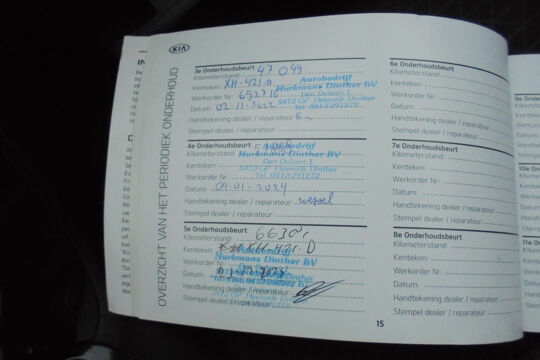 KIA
OVERZICHT VAN HET PERIODIEK ONDERHOUD
3e Onderhoudsbeurt
Kilometerstand 47 049
Kenteken: XH-421-D
Werkorder Nr: 652716
Datum: 02-11-2022
Handtekening dealer / reparateur
Stempel dealer / reparateur
Autobedrijf
Hurkmans Dinther BV
Den Dolvert 1
5473 GP Heeswijk Dinther
Tel. 0413-291272
4e Onderhoudsbeurt
Kilometerstand
Kenteken:
Werkorder Nr:
Datum: 04-01-2024
Handtekening dealer / reparateur
Stempel dealer / reparateur
Autobedrijf
Hurkmans Dinther BV
Den Dolvert 1
5473 GP Heeswijk Dinther
Tel. 0413-291272
5e Onderhoudsbeurt
Kilometerstand
Kenteken XH-421-D
Werkorder Nr
Datum
Handtekening dealer / reparateur
Stempel dealer / reparateur
Autobedrijf
Hurkmans Dinther BV
6e Onderhoudsbeurt
Kilometerstand
Kenteken:
Werkorder Nr:
Datum:
Handtekening dealer / reparateur
Stempel dealer / reparateur
7e Onderhoudsbeurt
Kilometerstand
Kenteken:
Werkorder Nr:
Datum:
Handtekening dealer / reparateur
Stempel dealer / reparateur
8e Onderhoudsbeurt
Kilometerstand
Kenteken:
Werkorder Nr:
Datum:
Handtekening dealer / reparateur
Stempel dealer / reparateur
15